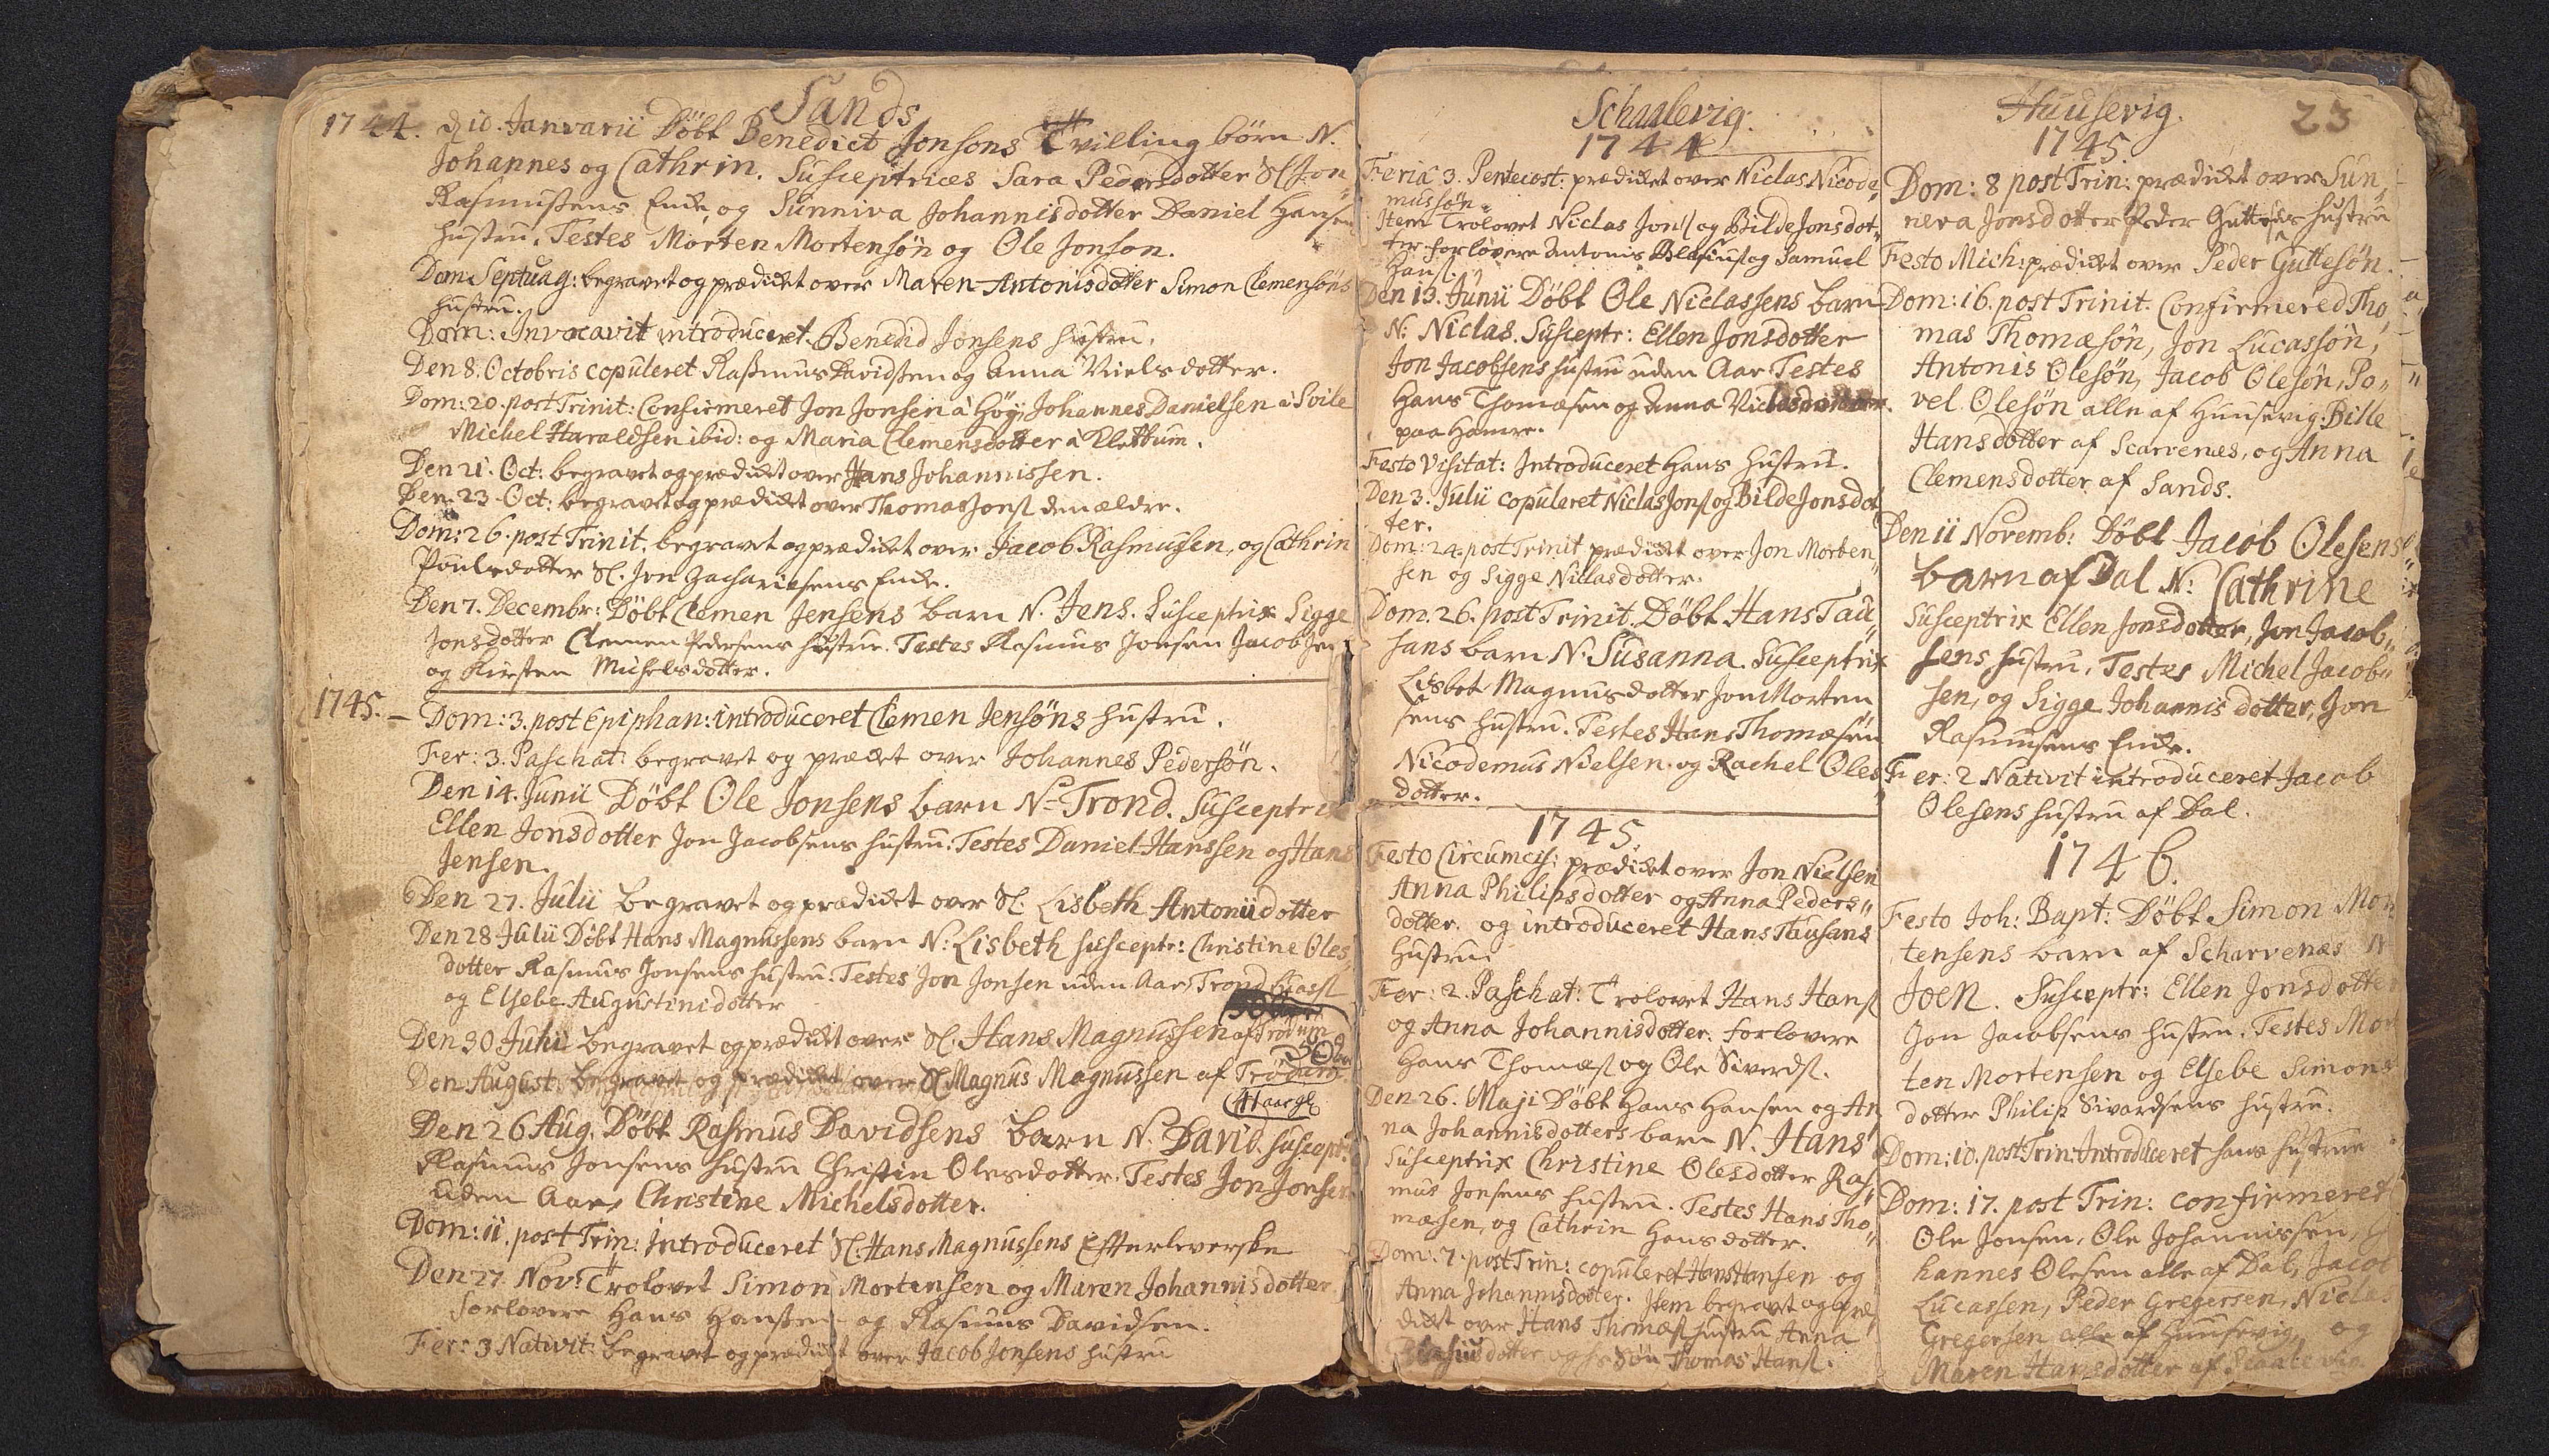 Sands
1744. d. 10. Januarii Döbt Benedict Jonsons Tvilling börn N.
Johannes og Cathrin. Susceptrices Sara Pedersdotter Sl. Jon
Rasmussens Enke, og Sunniva Johannisdotter Daniel Hansen
hustru. Testes Morten Mortensøn og Ole Jonson.
Dom: Septuag: begravet og prædicket over Maren Antonisdotter Simon Clemensöns
hustru.
Dom: Invocavit introduceret Benedict Jonsens hustru.
Den 8. Octobris copuleret Rasmus Davidsen og Anna Nielsdotter.
Dom: 20. post Trinit: Confirmeret Jon Jonsen à Høgi, Johannes Danielsen à
Michel Haraldsen ibid: og Maria Clemensdotter à Klettum.
Den 21. Oct: begravet og prædicket over Hans Johannissen.
Den 23. Oct: begravet og prædicket over Thomas Jons. den ældre.
Dom: 26. post Trinit. begravet og prædicket over Jacob Rasmussen, og Cathrin
Poulsdotter Sl. Jon Zachariesens Enke.
Den 7. Decembr: Döbt Clemen Jensens barn N. Jens. Susceptrix Sigge
Jonsdotter Clemen Pedersens hustru. Testes Rasmus Jonsen Jacob Jen
og Kirsten Michelsdotter.
1745. – Dom: 3. post Epiphan: introduceret Clemen Jensöns hustru.
Fer: 3. Paschat: begravet og prædict over Johannes Pedersön.
Den 14. Junii Döbt Ole Jonsens barn N= Trond. Susceptrix
Ellen Jonsdotter Jon Jacobsens hustru. Testes Daniel Hanssen og Hans
Jensen.
Den 27. Julii begravet og prædicket over Sl. Lisbeth Antoniidotter
Den 28 Julii Döbt Hans Magnussens barn N: Lisbeth Susceptr: Christine Oles
dotter Rasmus Jonsens hustru. Testes Jon Jonsen uden Aar, Trond
og Elsebe Augustinidotter
Den 30 Julii begravet og prædicket over Sl. Hans Magnussen af Trödum
Den August. begravet og prædicket over Sl Magnus Magnussen af Trödum
41 aar gl.
Den 26 Aug. Döbt Rasmus Davidsens barn N. David. Suscept:
Rasmus Jonsens hustru Christin Olesdotter. Testes Jon Jonsen
uden Aar, Christine Michelsdotter.
Dom: 11. post Trin: Introduceret Sl: Hans Magnussens Efterleverske
Den 27. Nov: Trolovet Simon Mortensen og Maren Johannisdotter
forlovere Hans Hanssen og Rasmus Davidsen.
Fer: 3 Nativit: begravet og prædicket over Jacob Jonsens hustru
Schaalevig.
1744
Feria 3. Pentecost: prædicket over Niclas Nicode„
mussøn.
Item Trolovet Niclas Jons. og Bilde Jonsdot„
ter forlovere Antonis Blasius. og Samuel
Hans.
Den 13. Junii Döbt Ole Niclassens barn
N: Niclas. Susceptr: Ellen Jonsdotter
Jon Jacobsens hustru uden Aar Testes
Hans Thomæsen og Anna
paa Hamre.
Festo Visitat: Introduceret hans hustru.
Den 3. Julii copuleret Niclas Jons. og Bilde Jonsdot
ter.
Dom: 24. post Trinit prædicket over Jon Morten„
sen og Sigge Niclasdotter.
Dom. 26. post Trinit. Döbt Hans Tau„
sans barn N. Susanna. Susceptrix
Lisbet Magnusdotter Jon Morten„
sens hustru. Testes Hans Thomæsen
Nicodemus Nielsen. og Rachel Oles
dotter.
1745
Festo Circumcis: prædicket over Jon Nielsen
Anna Philipsdotter og Anna Peders„
dotter. og introduceret Hans Tausans
hustru.
Fer: 2. Paschat: Trolovet Hans Hans.
og Anna Johannisdotter. forlovere
Hans Thomæs. og Ole Siverds.
Den 26. Maji Döbt Hans Hansen og An
na Johannisdotters barn N. Hans
Susceptrix Christine Olesdotter Ras
mus Jonsens hustru. Testes Hans Tho„
mæsen, og Cathrin Hansdotter.
Dom: 7. post Trin: copuleret Hans Hansen og
Anna Johannisdotter. Item begravet og præ
dicket over Hans Thomæs. hustru Anna
Blasiusdotter og h. Søn Thomas Hans.
Huusevig. 23
1745.
Dom: 8 post Trin: prædicket over Sun„
neva Jonsdotter Peder Guttesøns hustru
Festo Mich: prædicket over Peder Guttesøn.
Dom: 16. post Trinit. Confirmered Tho„
mas Thomæsön, Jon Lucassön,
Antonis Olesön, Jacob Olesön, Po„
vel. Olesön alle af Huusevig. Bille
Hansdotter af Scarvenes, og Anna
Clemensdotter af Sands.
Den 11 Novemb: Döbt Jacob Olesens
barn af Dal N: Cathrine
Susceptrix Ellen Jonsdotter, Jon Jacob„
sens hustru. Testes Michel Jacob„
sen, og Sigge Johannisdotter, Jon
Rasmusens Enke.
Fer: 2 Nativit introduceret Jacob
Olesens hustru af Dal.
1746.
Festo Joh: Bapt: Döbt Simon Mor
tensens barn af Scharvenæs N
Joen. Susceptr: Ellen Jonsdotter
Jon Jacobsens hustru. Testes Mor
ten Mortensen og Elsebe Simons
dotter Philip Sivardsens hustru.
Dom: 10. post Trin: Introduceret hans hustrue
Dom: 17. post Trin: confirmeret
Ole Jonsen, Ole Johannissen,
hannes Olesen alle af Dal, Jacob
Lucassen, Peder Gregersen, Niclas
Gregersen alle af Huusevig, og
Maren Hansdotter af Skaalevig